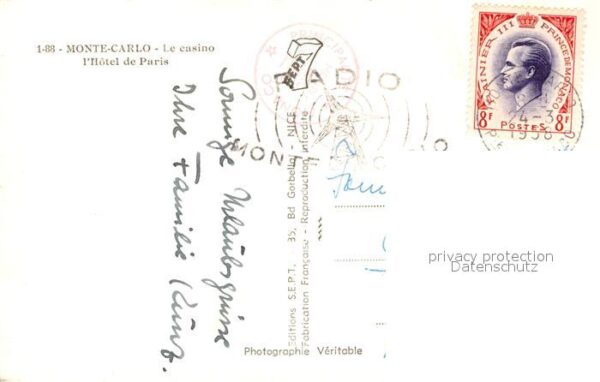 1-88 - MONTE-CARLO - Le casino
l'Hôtel de Paris
Sonnige Urlaubsgrüsse
Ihre Familie
Editions S.E.P.T. 35, Bd Gorbella - NICE
Fabrication Française - Reproduction interdite
Photographie Véritable
SEPT
RADIO
MONTE CARLO
RAINIER III PRINCE DE MONACO
8F POSTES 8F
24-3
1956
privacy protection
Datenschutz